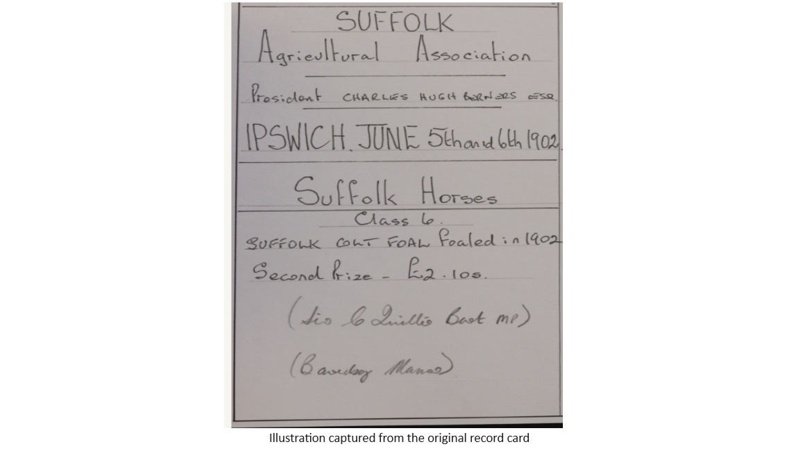 SUFFOLK
Agricultural Association
President CHARLES HUGH BERNERS ESQ
IPSWICH. JUNE 5th and 6th 1902
Suffolk Horses
Class 6.
SUFFOLK COLT FOAL Foaled in 1902
Second Prize - £2. 10s.
(Sir C Quilter Bart MP)
(Bawdsey Manor)
Illustration captured from the original record card